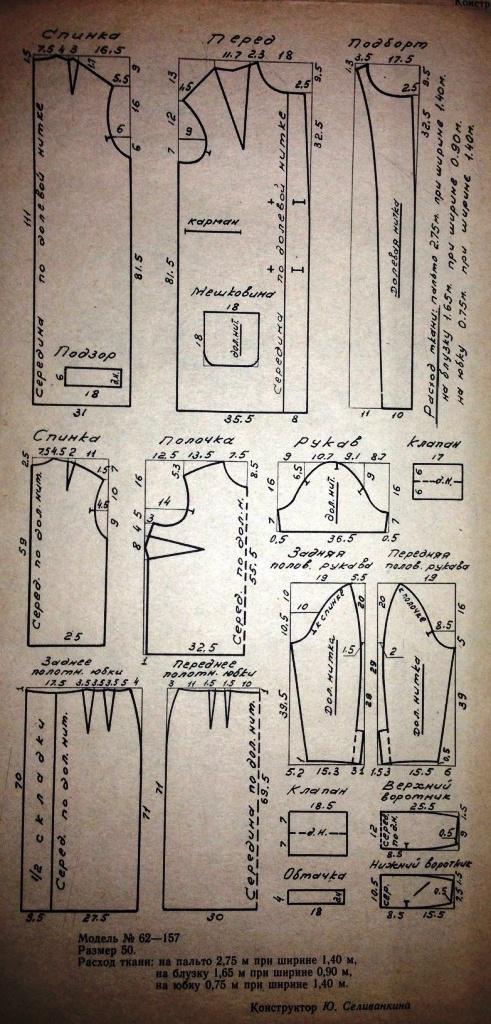 Констр
Спинка
1.5 7.5 4 3 1.7 16.5
9
5.5
16
6
6
111
Середина по долевой нитке
81.5
Подзор
6 д.н.
18
31
Перед
11.7 2.3 18
13
4.5
12
9
7
9.5
2.5
32.5
карман
81.5
Мешковина
18
18 дол.нит.
Середина по долевой нитке
35.5 8
Подборт
3.5 17.5
1.3
9.5
2.5
32.5
Долевая нитка
11 10
Расход ткани: пальто 2.75 м. при ширине 1,40 м.
на блузку 1.65 м. при ширине 0.90 м.
на юбку 0.75 м. при ширине 1.40 м.
Спинка
2.5 7.5 4.5 2 11
7
1.5
10
4.5
9
59
Серед. по дол. нит.
25
Полочка
12.5 13.5 7.5
5.3
8.5
16
14
5
4 3
8
Серед. по дол.н.
55.5
32.5
1
Рукав
9 10.7 9.1 8.7
16 6.5 9 16
дол.нит.
7 7
0.5 36.5 0.5
Клапан
17
6
д.н.
6
Задняя
полов. рукава
19 5.5
10
10
20
к спинке
10.5
1.5
Дол. нитка
39.5
28
5.2 15.3 3 1
Передняя
полов. рукава
19
20
к полочке
16
8.5
5
2
29
Дол. нитка
39
0.5
1.5 3 15.5 6
Заднее
полотн. юбки
1 17.5 3.5 3.5 3.5 5 4
70
1/2 складки
Серед. по дол. нит.
71
9.5 27.5
Переднее
полотн. юбки
3 11 1.5 1.5 10 1
71
Середина по дол. нит.
69.5
30
Клапан
18.5
7
д.н.
7
Обтачка
4 д.н.
18
Верхний
воротник
25.5
1.5
12 серед. по д.н.
9
8.5
Нижний воротник
10.5 сер.
0.5
1.5
7.5
8.5 15.5
Модель № 62—157
Размер 50.
Расход ткани: на пальто 2,75 м при ширине 1,40 м,
на блузку 1,65 м при ширине 0,90 м,
на юбку 0,75 м при ширине 1,40 м.
Конструктор Ю. Селиванкина